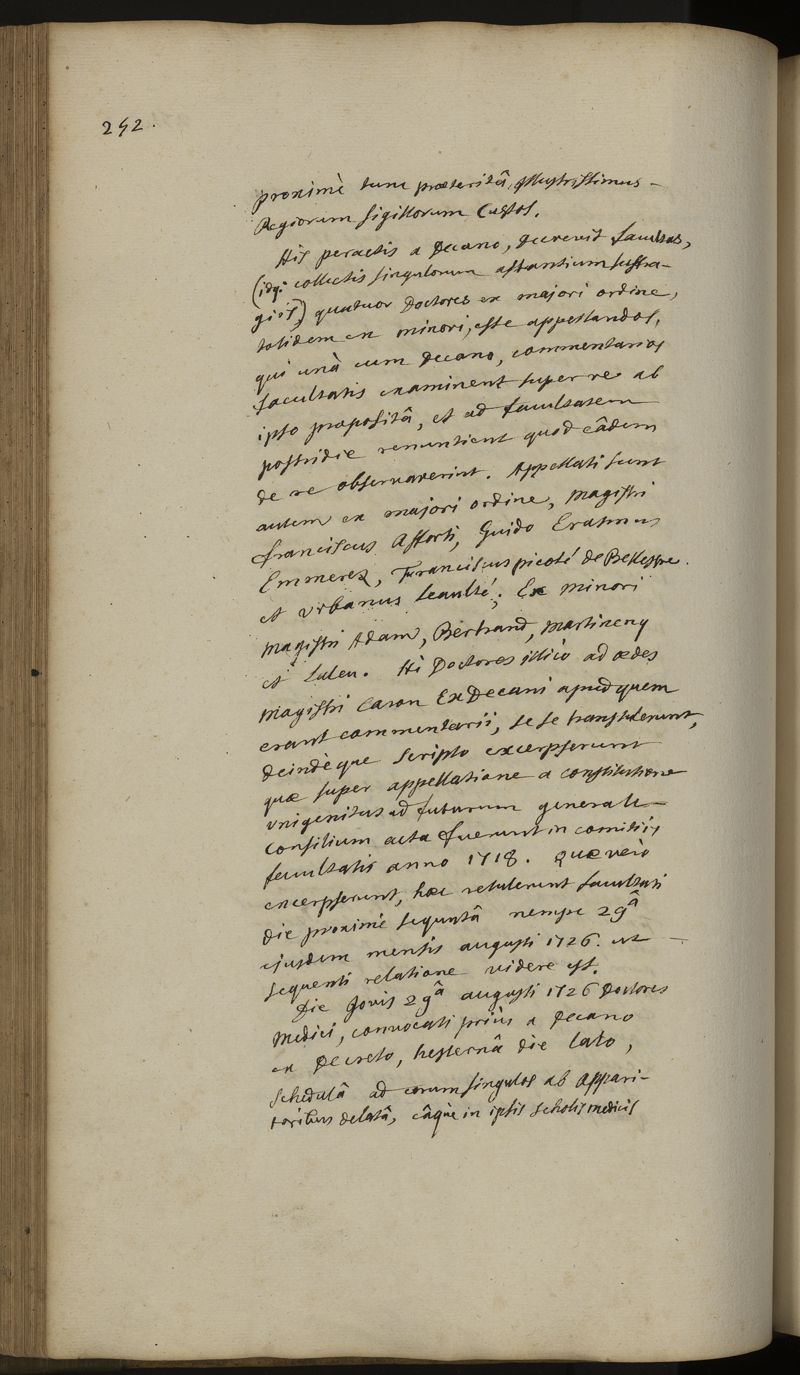 292.
proximè tunc præteritâ, illustrissimus
Regiorum sigillorum Custos.
His peractis a Decano, decrevit facultas,
(idq; collectis singulorum astantium suffra-
giis) quatuor Doctores ex majori ordine,
totidem ex minori, esse appellandos,
qui unà cum Decano, commentarios
facultatis examinent super re ab
ipso propositâ, et ad facultatem
postridie renuntient quod eâdem
de re observaverint. Appellati sunt
autem ex majori ordine, Magistri
franciscus Afforti, Guido Erasmus
Emmerez, Franciscus picoté de Bellestre.
et Urbanus leaulté; Ex minori
Magistri Adam, Bertrand, Martinenq
et Luleu. Hi Doctores illicò ad ædes
Magistri Caron Exdecani apud quem
erant commentarii, se se transtulerunt,
deindèque scripto excerpserunt
quæ super appellatione a constitutione
unigenitus ad futurum generale
consilium acta fuerunt in comitiis
facultatis anno 1718. quæ verò
excerpserunt, hæc retulerunt facultati
die proximè sequutâ nempe 29â
ejusdem mensis augusti 1726. ut
sequenti relatione videre est.
Die Jovis 29â augusti 1726 Doctores
Medici, convocati priùs a Decano
ex Decreto, hesternâ die lato,
schedulâ ad eorum singulos ab Appari-
toribus delatâ, eâque in ipsis scholis medicis